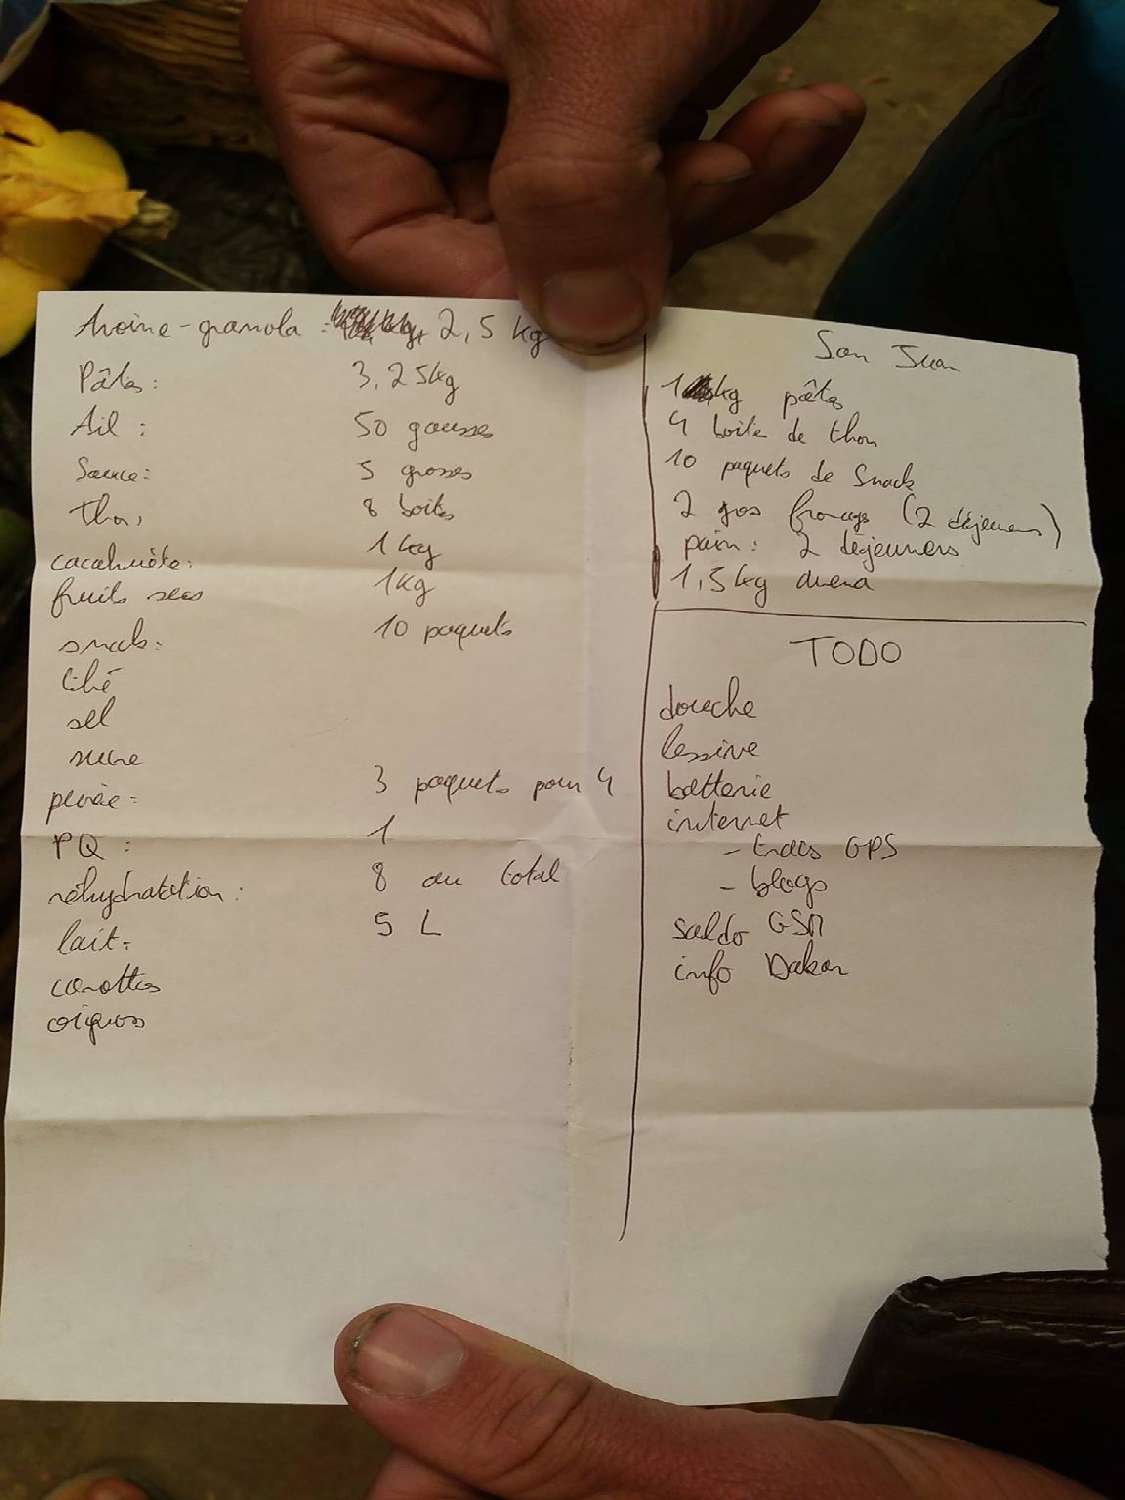 Avoine-granola : 2,5 kg
Pâtes : 3,25kg
Ail : 50 gousses
Sauce : 5 grosses
thon 8 boites
cacahuète : 1 kg
fruits secs 1kg
snack : 10 paquets
thé
sel
sucre
purée : 3 paquets pour 4
PQ : 1
réhydratation : 8 au total
lait : 5 L
carottes
oignons
San Juan
1 kg pâtes
4 boite de thon
10 paquets de snack
2 gros fromage (2 déjeuners)
pain : 2 déjeuners
1,5kg avena
TODO
douche
lessive
batterie
internet
- tracs GPS
- blogs
saldo GSM
info Dakar